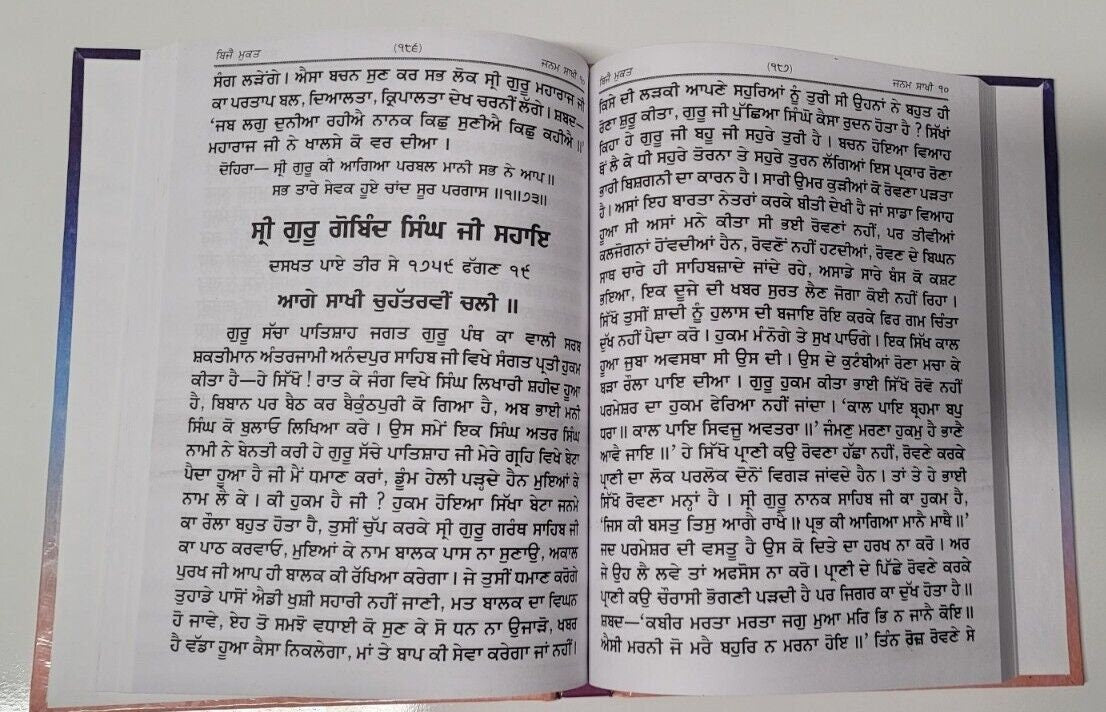 ਬਿਜੈ ਮੁਕਤ
(੧੮੬)
ਜਨਮ ਸਾਖੀ ੧੦
ਸੰਗ ਲੜੇਂਗੇ। ਐਸਾ ਬਚਨ ਸੁਣ ਕਰ ਸਭ ਲੋਕ ਸ੍ਰੀ ਗੁਰੂ ਮਹਾਰਾਜ ਜੀ
ਕਾ ਪਰਤਾਪ ਬਲ, ਦਿਆਲਤਾ, ਕ੍ਰਿਪਾਲਤਾ ਦੇਖ ਚਰਨੀਂ ਲੱਗੇ। ਸ਼ਬਦ—
'ਜਬ ਲਗੁ ਦੁਨੀਆ ਰਹੀਐ ਨਾਨਕ ਕਿਛੁ ਸੁਣੀਐ ਕਿਛੁ ਕਹੀਐ॥'
ਮਹਾਰਾਜ ਜੀ ਨੇ ਖਾਲਸੇ ਕੋ ਵਰ ਦੀਆ।
ਦੋਹਿਰਾ— ਸ੍ਰੀ ਗੁਰੂ ਕੀ ਆਗਿਆ ਪਰਬਲ ਮਾਨੀ ਸਭ ਨੇ ਆਪ॥
ਸਭ ਤਾਰੇ ਸੇਵਕ ਹੂਏ ਚਾਂਦ ਸੂਰ ਪਰਗਾਸ॥੧॥੭੩॥
ਸ੍ਰੀ ਗੁਰੂ ਗੋਬਿੰਦ ਸਿੰਘ ਜੀ ਸਹਾਇ
ਦਸਖਤ ਪਾਏ ਤੀਰ ਸੇ ੧੭੫੯ ਫੱਗਣ ੧੯
ਆਗੇ ਸਾਖੀ ਚੁਹੱਤਰਵੀਂ ਚਲੀ॥
ਗੁਰੂ ਸੱਚਾ ਪਾਤਿਸ਼ਾਹ ਜਗਤ ਗੁਰੂ ਪੰਥ ਕਾ ਵਾਲੀ ਸਰਬ
ਸ਼ਕਤੀਮਾਨ ਅੰਤਰਜਾਮੀ ਅਨੰਦਪੁਰ ਸਾਹਿਬ ਜੀ ਵਿਖੇ ਸੰਗਤ ਪ੍ਰਤੀ ਹੁਕਮ
ਕੀਤਾ ਹੈ—ਹੇ ਸਿੱਖੋ! ਰਾਤ ਕੇ ਜੰਗ ਵਿਖੇ ਸਿੰਘ ਲਿਖਾਰੀ ਸ਼ਹੀਦ ਹੂਆ
ਹੈ, ਬਿਬਾਨ ਪਰ ਬੈਠ ਕਰ ਬੈਕੁੰਠਪੁਰੀ ਕੋ ਗਿਆ ਹੈ, ਅਬ ਭਾਈ ਮਨੀ
ਸਿੰਘ ਕੋ ਬੁਲਾਓ ਲਿਖਿਆ ਕਰੇ। ਉਸ ਸਮੇਂ ਇਕ ਸਿੰਘ ਅਤਰ ਸਿੰਘ
ਨਾਮੀ ਨੇ ਬੇਨਤੀ ਕਰੀ ਹੇ ਗੁਰੂ ਸੱਚੇ ਪਾਤਿਸ਼ਾਹ ਜੀ ਮੇਰੇ ਗ੍ਰਹਿ ਵਿਖੇ ਬੇਟਾ
ਪੈਦਾ ਹੂਆ ਹੈ ਜੀ ਮੈਂ ਧਮਾਣ ਕਰਾਂ, ਡੂੰਮ ਹੇਲੀ ਪੜ੍ਹਦੇ ਹੈਨ ਮੁਇਆਂ ਕੇ
ਨਾਮ ਲੈ ਕੇ। ਕੀ ਹੁਕਮ ਹੈ ਜੀ? ਹੁਕਮ ਹੋਇਆ ਸਿੱਖਾ ਬੇਟਾ ਜਨਮੇ
ਕਾ ਰੌਲਾ ਬਹੁਤ ਹੋਤਾ ਹੈ, ਤੁਸੀਂ ਚੁੱਪ ਕਰਕੇ ਸ੍ਰੀ ਗੁਰੂ ਗਰੰਥ ਸਾਹਿਬ ਜੀ
ਕਾ ਪਾਠ ਕਰਵਾਓ, ਮੁਇਆਂ ਕੇ ਨਾਮ ਬਾਲਕ ਪਾਸ ਨਾ ਸੁਣਾਉ, ਅਕਾਲ
ਪੁਰਖ ਜੀ ਆਪ ਹੀ ਬਾਲਕ ਕੀ ਰੱਖਿਆ ਕਰੇਗਾ। ਜੇ ਤੁਸੀਂ ਧਮਾਣ ਕਰੋਗੇ
ਤੁਹਾਡੇ ਪਾਸੋਂ ਐਡੀ ਖੁਸ਼ੀ ਸਹਾਰੀ ਨਹੀਂ ਜਾਣੀ, ਮਤ ਬਾਲਕ ਦਾ ਵਿਘਨ
ਹੋ ਜਾਵੇ, ਏਹ ਤੋ ਸਮਝੋ ਵਧਾਈ ਕੋ ਸੁਣ ਕੇ ਸੋ ਧਨ ਨਾ ਉਜਾੜੋ, ਖਬਰ
ਹੈ ਵੱਡਾ ਹੂਆ ਕੈਸਾ ਨਿਕਲੇਗਾ, ਮਾਂ ਤੇ ਬਾਪ ਕੀ ਸੇਵਾ ਕਰੇਗਾ ਜਾਂ ਨਹੀਂ।
ਬਿਜੈ ਮੁਕਤ
(੧੮੭)
ਜਨਮ ਸਾਖੀ ੧੦
ਕਿਸੇ ਦੀ ਲੜਕੀ ਆਪਣੇ ਸਹੁਰਿਆਂ ਨੂੰ ਤੁਰੀ ਸੀ ਉਹਨਾਂ ਨੇ ਬਹੁਤ ਹੀ
ਰੋਣਾ ਸ਼ੁਰੂ ਕੀਤਾ, ਗੁਰੂ ਜੀ ਪੁੱਛਿਆ ਸਿੰਘੋ ਕੈਸਾ ਰੁਦਨ ਹੋਤਾ ਹੈ? ਸਿੱਖਾਂ
ਕਿਹਾ ਹੇ ਗੁਰੂ ਜੀ ਬਹੂ ਜੀ ਸਹੁਰੇ ਤੁਰੀ ਹੈ। ਬਚਨ ਹੋਇਆ ਵਿਆਹ
ਥੋਂ ਲੈ ਕੇ ਧੀ ਸਹੁਰੇ ਤੋਰਨਾ ਤੇ ਸਹੁਰੇ ਤੁਰਨ ਲੱਗਿਆਂ ਇਸ ਪ੍ਰਕਾਰ ਰੋਣਾ
ਭਾਰੀ ਬਿਸ਼ਗਨੀ ਦਾ ਕਾਰਨ ਹੈ। ਸਾਰੀ ਉਮਰ ਕੁੜੀਆਂ ਕੋ ਰੋਵਣਾ ਪੜਤਾ
ਹੈ। ਅਸਾਂ ਇਹ ਬਾਰਤਾ ਨੇਤਰਾਂ ਕਰਕੇ ਬੀਤੀ ਦੇਖੀ ਹੈ ਜਾਂ ਸਾਡਾ ਵਿਆਹ
ਹੂਆ ਸੀ ਅਸਾਂ ਮਨੇ ਕੀਤਾ ਸੀ ਭਈ ਰੋਵਣਾਂ ਨਹੀਂ, ਪਰ ਤੀਵੀਆਂ
ਕਲਜੋਗਨਾਂ ਹੋਂਵਦੀਆਂ ਹੈਨ, ਰੋਵਣੋਂ ਨਹੀਂ ਹਟਦੀਆਂ, ਰੋਵਣ ਦੇ ਬਿਘਨ
ਸਾਥ ਚਾਰੇ ਹੀ ਸਾਹਿਬਜ਼ਾਦੇ ਜਾਂਦੇ ਰਹੇ, ਅਸਾਡੇ ਸਾਰੇ ਬੰਸ ਕੋ ਕਸ਼ਟ
ਭਇਆ, ਇਕ ਦੂਜੇ ਦੀ ਖਬਰ ਸੁਰਤ ਲੈਣ ਜੋਗਾ ਕੋਈ ਨਹੀਂ ਰਿਹਾ।
ਸਿੱਖੋ ਤੁਸੀਂ ਸ਼ਾਦੀ ਨੂੰ ਹੁਲਾਸ ਦੀ ਬਜਾਇ ਰੋਇ ਕਰਕੇ ਫਿਰ ਗਮ ਚਿੰਤਾ
ਦੁੱਖ ਨਹੀਂ ਪੈਦਾ ਕਰੋ। ਹੁਕਮ ਮੰਨੋਗੇ ਤੇ ਸੁਖ ਪਾਓਗੇ। ਇਕ ਸਿੱਖ ਕਾਲ
ਹੂਆ ਜੁਬਾ ਅਵਸਥਾ ਸੀ ਉਸ ਦੀ। ਉਸ ਦੇ ਕੁਟੰਬੀਆਂ ਰੋਣਾ ਮਚਾ ਕੇ
ਬੜਾ ਰੌਲਾ ਪਾਇ ਦੀਆ। ਗੁਰੂ ਹੁਕਮ ਕੀਤਾ ਭਾਈ ਸਿੱਖੋ ਰੋਵੋ ਨਹੀਂ
ਪਰਮੇਸ਼ਰ ਦਾ ਹੁਕਮ ਫੇਰਿਆ ਨਹੀਂ ਜਾਂਦਾ। 'ਕਾਲ ਪਾਇ ਬ੍ਰਹਮਾ ਬਪੁ
ਧਰਾ॥ ਕਾਲ ਪਾਇ ਸਿਵਜੂ ਅਵਤਰਾ॥' ਜੰਮਣੁ ਮਰਣਾ ਹੁਕਮੁ ਹੈ ਭਾਣੈ
ਆਵੈ ਜਾਇ॥' ਹੇ ਸਿੱਖੋ ਪ੍ਰਾਣੀ ਕਉ ਰੋਵਣਾ ਹੱਛਾ ਨਹੀਂ, ਰੋਵਣੇ ਕਰਕੇ
ਪ੍ਰਾਣੀ ਦਾ ਲੋਕ ਪਰਲੋਕ ਦੋਨੋਂ ਵਿਗੜ ਜਾਂਵਦੇ ਹੈਨ। ਤਾਂ ਤੇ ਹੇ ਭਾਈ
ਸਿੱਖੋ ਰੋਵਣਾ ਮਨ੍ਹਾਂ ਹੈ। ਸ੍ਰੀ ਗੁਰੂ ਨਾਨਕ ਸਾਹਿਬ ਜੀ ਕਾ ਹੁਕਮ ਹੈ,
'ਜਿਸ ਕੀ ਬਸਤੁ ਤਿਸੁ ਆਗੈ ਰਾਖੈ॥ ਪ੍ਰਭ ਕੀ ਆਗਿਆ ਮਾਨੈ ਮਾਥੈ॥'
ਜਦ ਪਰਮੇਸ਼ਰ ਦੀ ਵਸਤੂ ਹੈ ਉਸ ਕੋ ਦਿਤੇ ਦਾ ਹਰਖ ਨਾ ਕਰੋ। ਅਰ
ਜੇ ਉਹ ਲੈ ਲਵੇ ਤਾਂ ਅਫਸੋਸ ਨਾ ਕਰੋ। ਪ੍ਰਾਣੀ ਦੇ ਪਿੱਛੇ ਰੋਵਣੇ ਕਰਕੇ
ਪ੍ਰਾਣੀ ਕਉ ਚੌਰਾਸੀ ਭੋਗਣੀ ਪੜਦੀ ਹੈ ਪਰ ਜਿਗਰ ਕਾ ਦੁੱਖ ਹੋਤਾ ਹੈ॥
ਸ਼ਬਦ—'ਕਬੀਰ ਮਰਤਾ ਮਰਤਾ ਜਗੁ ਮੁਆ ਮਰਿ ਭਿ ਨ ਜਾਨੈ ਕੋਇ॥
ਐਸੀ ਮਰਨੀ ਜੋ ਮਰੈ ਬਹੁਰਿ ਨ ਮਰਨਾ ਹੋਇ॥' ਤਿੰਨ ਰੋਜ਼ ਰੋਵਣੇ ਸੇ